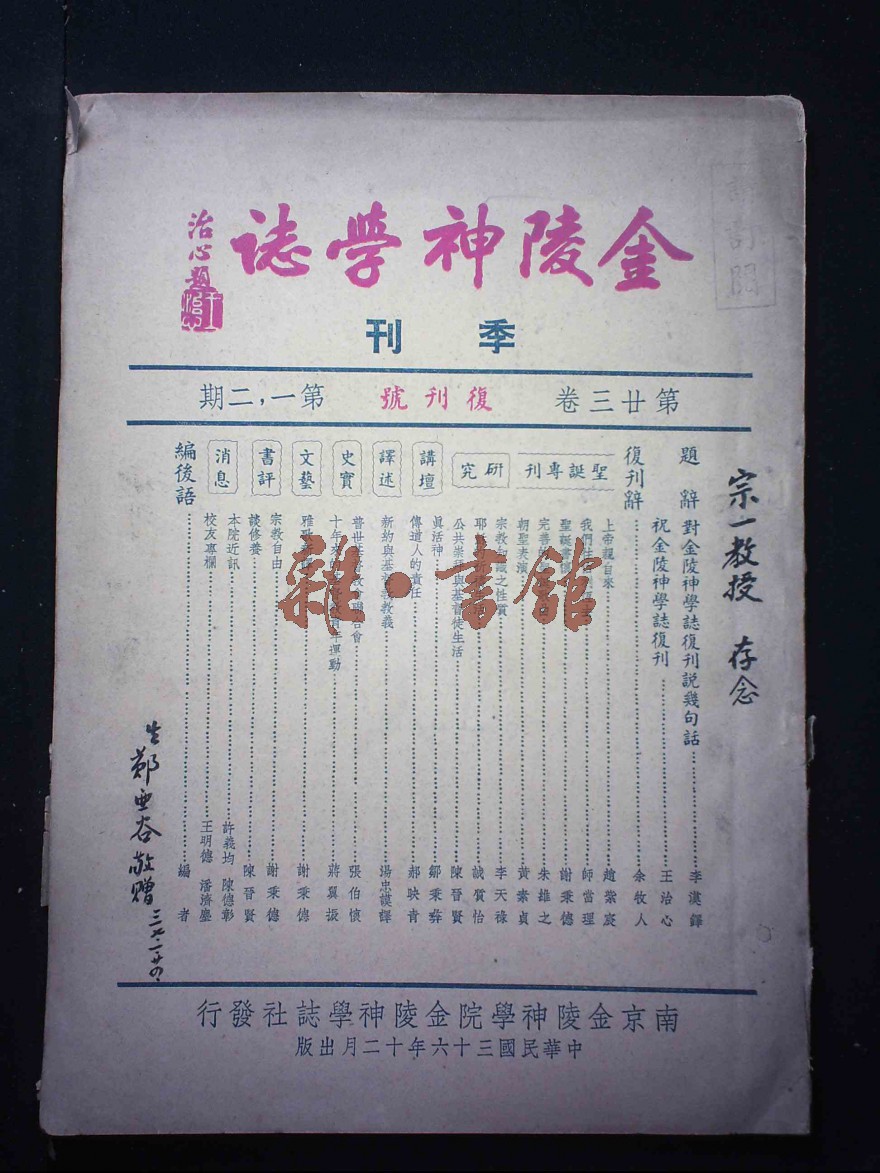 金陵神學誌
治心題
季刊
第廿三卷 復刊號 第一,二期
題辭 對金陵神學誌復刊說幾句話 李漢鐸
祝金陵神學誌復刊 王治心
復刊辭 余牧人
聖誕專刊
上帝親自來 趙紫宸
我們 師當理
聖誕書 謝秉德
完善的 朱雄之
朝聖表演 黃素貞
研究
宗教 之性質 李天祿
耶 誠質怡
公共崇拜與基督徒生活 陳晉賢
講壇
眞活神 鄒秉彝
傳道人的責任 郝映青
譯述
新約與基督教教義 湯忠謨譯
史實
普世基督教會聯合會 張伯懷
十年來 年運動 蔣翼振
文藝
雅歌 謝秉德
書評
宗教自由 謝秉德
談修養 陳晉賢
消息
本院近訊 許義均 陳德彰
校友專欄 王明德 潘濟鏖
編後語 編者
宗一教授 存念
生 鄭亜谷敬贈 三七.一.廿四.
請訂閱
雜·書館
南京金陵神學院金陵神學誌社發行
中華民國三十六年十二月出版